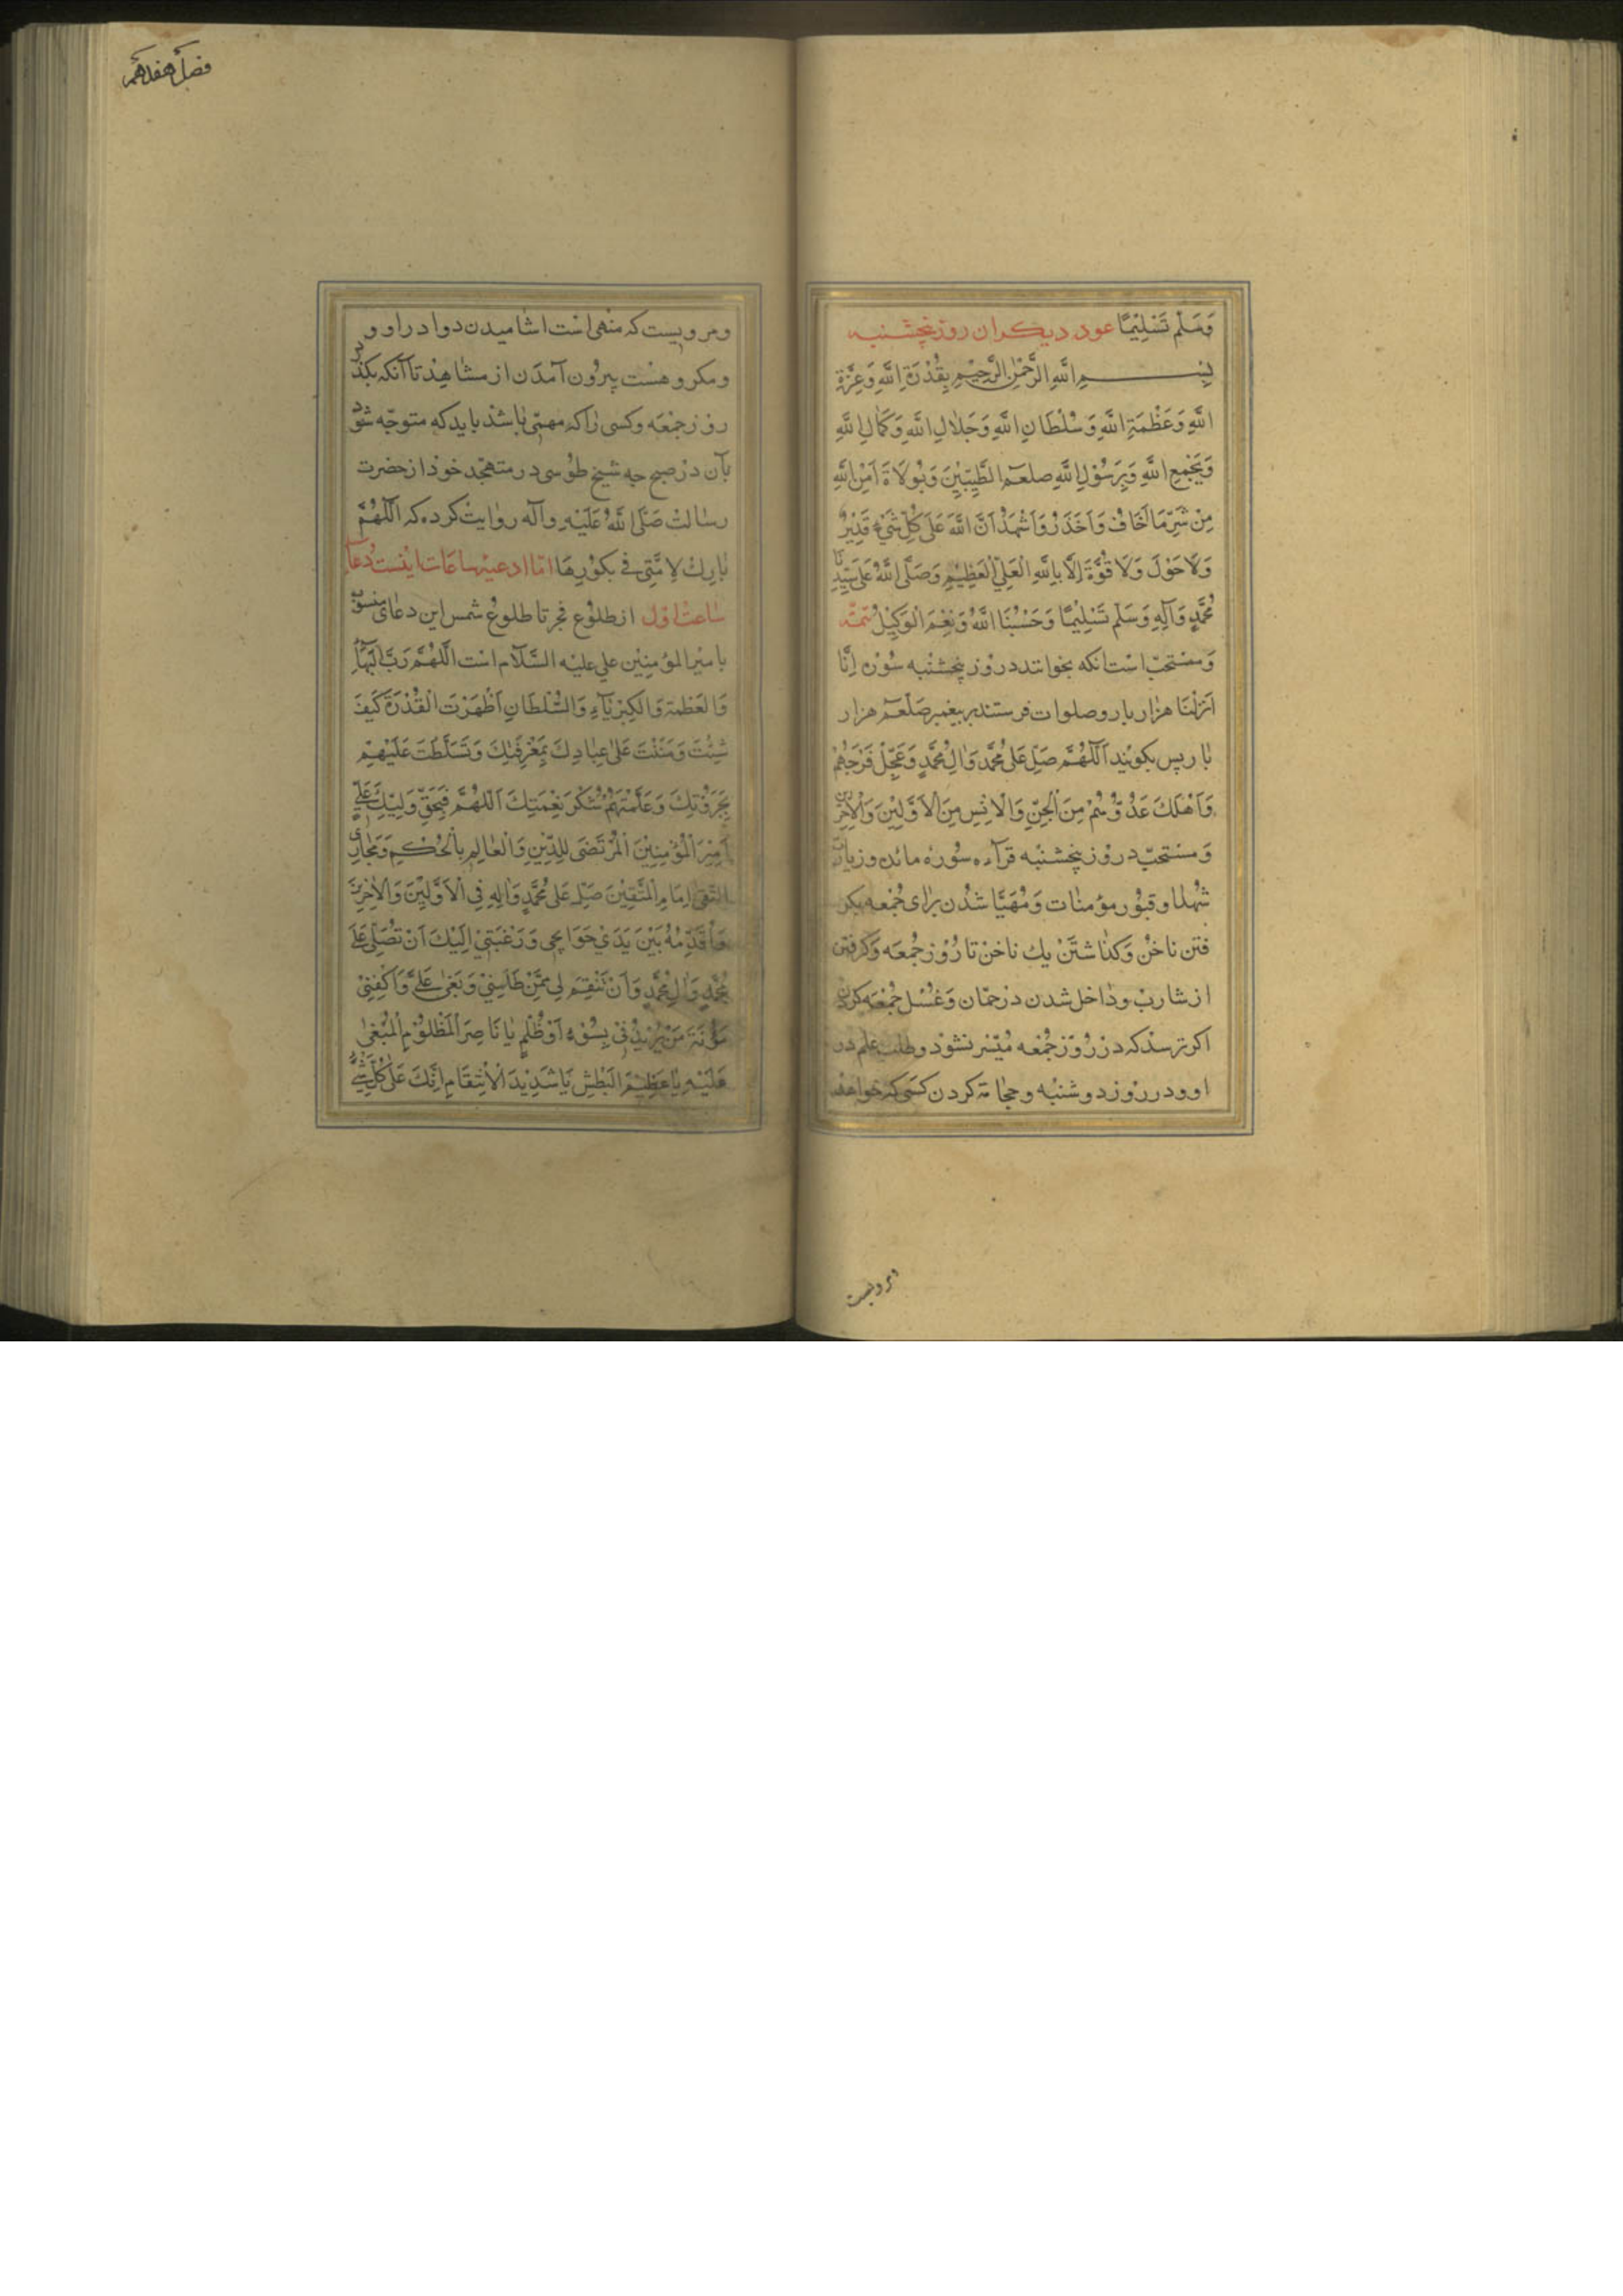 وَسَلَّمَ تَسْلِيْمًا عود دیکر ان روز پنجشنبه
بِسْــــمِ اللَّهِ الرَّحْمٰنِ الرَّحِيْمِ بِقُدْرَةِ اللَّهِ وَعِزَّةِ
اللَّهِ وَعَظْمَةِ اللَّهِ وَسُلْطَانِ اللَّهِ وَجَلَالِ اللَّهِ وَكَمَالِ اللَّهِ
وَبِجَمْعِ اللَّهِ وَبِرَسُوْلِ اللَّهِ صلعم الطَّيِّبِيْنَ وَبُولَاةِ اَمْرِ اللَّهِ
مِنْ شَرِّ مَا اَخَافُ وَاَحْذَرُ وَاَشْهَدُ اَنَّ اللَّهَ عَلَى كُلِّ شَيْءٍ قَدِيْرٌ
وَلَا حَوْلَ وَلَا قُوَّةَ اِلَّا بِاللَّهِ الْعَلِيِّ الْعَظِيْمِ وَصَلَّى اللَّهُ عَلَى سَيِّدِنَا
مُحَمَّدٍ وَآلِهِ وَسَلَّمَ تَسْلِيْمًا وَحَسْبُنَا اللَّهُ وَنِعْمَ الْوَكِيْلُ تتمّه
وَمستحبّ است انکه بخوانند در روز پنجشنبه سُوره اِنَّا
اَنْزَلْنَا هزار بار و صلوات فرستند بر پیغمبر صَلْعَم هزار
بار پس بکویند اَللّٰهُمَّ صَلِّ عَلٰى مُحَمَّدٍ وَاٰلِ مُحَمَّدٍ وَعَجِّلْ فَرَجَهُمْ
وَاَهْلِكْ عَدُوَّهُمْ مِنَ الْجِنِّ وَالْاِنْسِ مِنَ الْاَوَّلِيْنَ وَالْاٰخِرِيْنَ
وَمستحبّ در روز پنجشنبه قرآءه سُوره مائده و زیارت
شُهدا و قبُور مؤمنات وَمُهَیَّا شُدن برای جُمْعه بکر
فتن ناخُن وَکذاشتَن یك ناخن تا رُوز جُمعَه وَکرفتن
از شارب و داخل شدن در حمّان وَغُسْل جُمْعَه کردن
اکر ترسذ که در رُوز جُمْعه مُیَسّر نشود و طلب علم در
او و در روز دوشنبه و حجامة کردن کسی که خواهد
ومرویست
فصل هفدهم
و مرویست که منهی است اشامیدن دوا در او و
و مکروهست بیرُون آمدَن از مشاهِد تا آنکه بکذرد
روز جمعَه و کسی را که مهمّی باشد باید که متوجّه شود
بآن در صبح چه شیخ طوُسی در متهجّد خوذ از حضرت
رسالت صَلَّى اللَّهُ عَلَيْهِ وآله روایت کرده که اَللّٰهُمَّ
بَارِكْ لِاُمَّتِى فِي بكُوْرِهَا امّا ادعیه ساعات اینست دُعآءِ
ساعت اوّل از طلوُع فجر تا طلوُع شمس این دعای منسوب
بامیرالمؤمنِین علی علیه السَّلام است اَللّٰهُمَّ رَبَّ الْبَهَآءِ
وَالعَظَمَةِ وَالكِبْرِيَآءِ وَالسُّلْطَانِ اَظْهَرْتَ الْقُدْرَةَ كَيْفَ
شِئْتَ وَمَنَنْتَ عَلٰى عِبَادِكَ بِمَعْرِفَتِكَ وَتَسَلَّطْتَ عَلَيْهِمْ
بِجَبَرُوْتِكَ وَعَلَّمْتَهُمْ شُكْرَ نِعْمَتِكَ اَللّٰهُمَّ فَبِحَقِّ وَلِيِّكَ عَلِيٍّ
اَمِيْرِ الْمُؤْمِنِيْنَ الْمُرْتَضٰى لِلدِّيْنِ وَالْعَالِمِ بِالْحُكْمِ وَمَجَارِى
التُّقٰى اِمَامِ الْمُتَّقِيْنَ صَلِّ عَلٰى مُحَمَّدٍ وَاٰلِهِ فِي الْاَوَّلِيْنَ وَالْاٰخِرِيْنَ
وَاُقَدِّمُهُ بَيْنَ يَدَيْ حَوَائِجِى وَرَغْبَتِيْ اِلَيْكَ اَنْ تُصَلِّىَ عَلٰى
مُحَمَّدٍ وَاٰلِ مُحَمَّدٍ وَاَنْ تَنْتَقِمَ لِى مِمَّنْ ظَلَمَنِيْ وَبَغٰى عَلَيَّ وَاكْفِنِيْ
مَؤُنَةَ مَنْ يُرِيْدُنِيْ بِسُوْءٍ اَوْ ظُلْمٍ يَا نَاصِرَ الْمَظْلُوْمِ الْمَبْغٰى
عَلَيْهِ يَا عَظِيْمَ الْبَطْشِ يَا شَدِيْدَ الْاِنْتِقَامِ اِنَّكَ عَلٰى كُلِّ شَيْءٍ